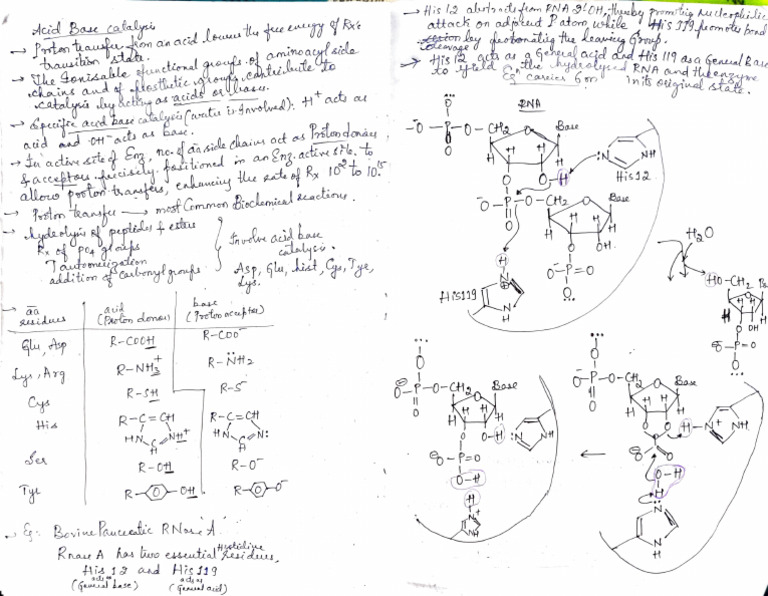 Acid Base catalysis
→ Proton transfer from an acid lowers the free energy of Rx's
transition state.
→ The Ionisable functional groups of aminoacyl side
chains and of prosthetic groups contribute to
catalysis by acting as acids or bases.
→ Specific acid base catalysis (water is Involved): H⁺ acts as
acid and OH⁻ acts as base.
→ In active site of Enz, no. of aa side chains act as Proton donors
& acceptors precisely positioned in an Enz. active site, to
allow proton transfers, enhancing the rate of Rx 10² to 10⁵
→ Proton transfer → most Common Biochemical reactions.
→ hydrolysis of peptides & esters
Rx of PO4 groups
Tautomerization
addition of Carbonyl groups
Involve acid base
catalysis.
Asp, Glu, hist, Cys, Tyr,
Lys.
→ aa
residues
acid
(Proton donor)
base
(Proton acceptor)
Glu, Asp R-COOH R-COO⁻
Lys, Arg R-NH₃⁺ R-N̈H₂
Cys R-SH R-S⁻
His R-C=CH R-C=CH
HN NH⁺ HN N:
C C
H H
Ser R-OH R-O⁻
Tyr R- -OH R- -O⁻
→ Eg: Bovine Pancreatic RNase A
RNase A has two essential Histidine residues,
His 12 and His 119
acts as acts as
(General base) (General acid)
→ His 12 abstracts from RNA 2'OH, thereby promoting nucleophilic
attack on adjacent P atom, while His 119 promotes bond
cleavage by protonating the leaving Group.
→ His 12 acts as a General acid and His 119 as a General Base
to yield the hydrolysed RNA and the enzyme
in its original state.
RNA
⁻O-P-O-CH₂ O Base
O
H H H H
O O-H :N NH
His 12
⁻O-P-O-CH₂ O Base
O
H H H H
O OH
⁻O-P=O
O
H
N
His 119
N
H
H₂O
HO-CH₂
H H
OH
O
⁻O-P=O
O
O
⁻O-P-O-CH₂ O Base
O
H H H H
O O-H :N NH
⁻O-P=O
O-H
H
N⁺
N
H
←
O
⁻O-P-O-CH₂ O Base
O
H H H H
O O H-N⁺ NH
P
⁻O O
O-H
H
N
N
H